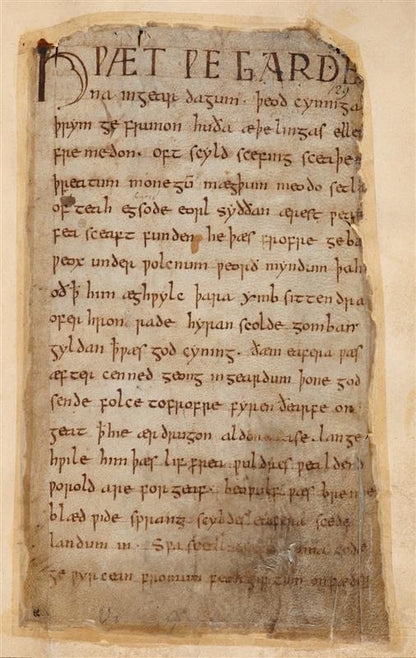 HǷÆT ǷE GARDE
na ingear dagum. þeod cyninga
þrym ge frunon huða æþelingas elle
fremedon. oft scyld scefing sceaþe
þreatum monegū mægþum meodo setla
of teah egsode eorl syððan ærest
fea sceaft funden he þæs frofre geba
ƿeox under ƿolcnum ƿeorð myndum þah
oð ꝥ him æghƿylc þara ymb sittendra
ofer hron rade hyran scolde gomban
gyldan ꝥ ƿæs god cyning. ðæm eafera ƿæs
æfter cenned geong ingeardum þone god
sende folce tofrofre fyren ðearfe on
geat ꝥ hie ær drugon aldor ase. lange
hƿile him þæs lif frea ƿuldres ƿealdend
ƿorold are for geaf. beoƿulf ƿæs breme
blæd ƿide sprang scyldes eafera scede
landum in. Sƿa sceal guma gode
ge ƿyrcean fromum feoh giftum on fæder